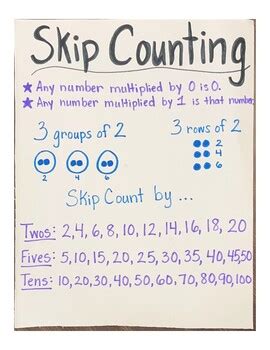 Skip Counting
★ Any number multiplied by 0 is 0.
★ Any number multiplied by 1 is that number.
3 groups of 2
2 4 6
3 rows of 2
2
4
6
Skip Count by ...
Twos: 2,4,6,8,10,12,14,16,18,20
Fives: 5,10,15,20,25,30,35,40,45,50
Tens: 10,20,30,40,50,60,70,80,90,100